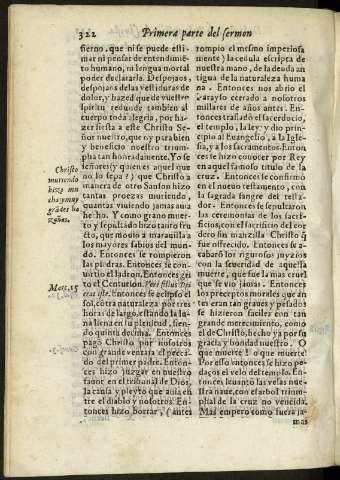 322 Primera parte del sermon
fierno, que ni se puede esti-
mar ni pensar de entendimiẽ-
to humano, ni lengua mortal
poder declararla. Despojaos,
despojaos de las vestiduras de
dolor, y hazed que de vuestro
spiritu redunde tambien al
cuerpo toda alegria, por ha-
zer fiesta a este Christo Se-
ñor nuestro, que oy para bien
y beneficio nuestro trium-
pha tan honradamente. Yo se
señores (y quien es aquel que
no lo sepa?) que Christo a
manera de otro Sanson hizo
tantas proezas muriendo,
quantas viuiendo jamas auia
hecho. Y como grano muer-
to y sepultado hizo tanto fru
cto, que mouio a marauilla a
los mayores sabios del mun-
do. Entonces se rompieron
las piedras. Entonces se con-
uirtio el ladron. Entonces gri
to el Centurion.
Entonces se eclipso el
sol, contra naturaleza por tres
horas de largo, estando la lu-
na llena en su plenitud, sien-
do quinta decima. Entonces
pagò Christo por nosotros
con grande ventaja el pecca-
do del primer padre. Entonces
hizo juzgar en nuestro
fauor en el tribunal de Dios,
la causa y pleyto que auia en
tre el diablo y nosotros. En-
tonces hizo borrar, (antes
Christo
muriendo
hizo mu
chas y muy
grãdes ha
zañas.
Marc. 15
rompio el mesmo imperiosa
mente) la cedula escripta de
nuestra mano, de la deuda an
tigua de la naturaleza huma
na. Entonces nos abrio el
Parayso cerrado a nosotros
millares de años antes. En-
tonces trasladó el sacerdocio,
el templo, la ley y dio princi-
pio al Euangelio, a la Igle-
sia, y a los sacramentos. Enton
ces se hizo conocer por Rey
en aquel famoso titulo de la
cruz. Entonces se confirmò
en el nueuo testamento, con
la sagrada sangre del testa-
dor. Entonces se sepultaron
las ceremonias de los sacri-
ficios, con el sacrificio del cor
dero sin manzilla Christo q̃
fue offrecido. Entonces se a-
cabarõ los rigurosos juyzios
con la seueridad de aquella
muerte, que fue la mas cruel
que se vio jamas. Entonces
los preceptos morales que an
tes eran tan graues y pesados
se hizieron faciles con tan
grande merecimiento, como
el de Christo, hecho ya por su
gracia y bondad nuestro. O
que muerte! o que muerte!
Por esso entonces se hizo pe-
daços el velo del templo. En-
tonces leuantò las velas nue-
stra naue, con el arbol trium-
phal de la cruz no vencida.
Mas empero como fuera ja-
mas